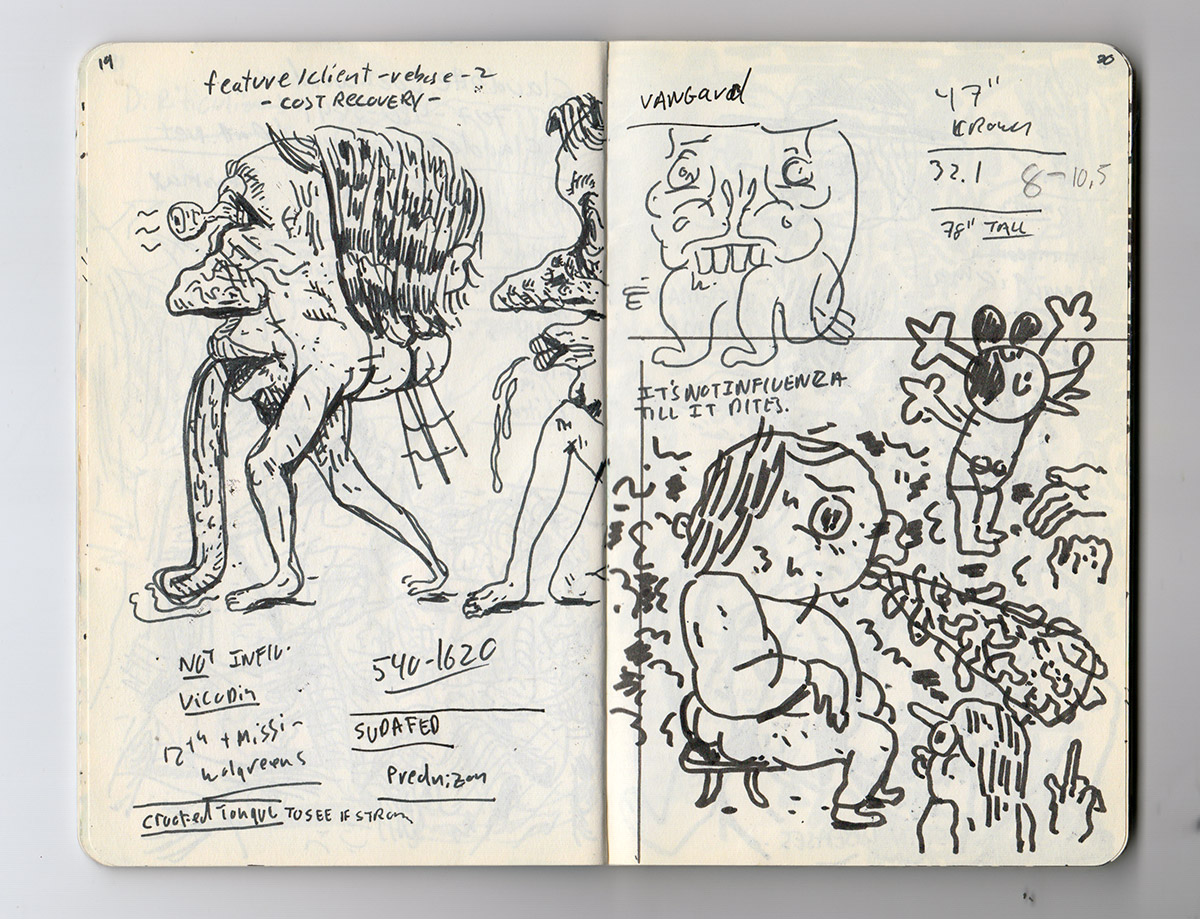 19
feature/client-rebase-2
- COST RECOVERY -
NOT INFLU.
Vicodin
12th + Missi-
walgreens
Crooked Tongue TO SEE IF STRONG
540-1620
SUDAFED
Prednizon
20
VANGavd
47"
KROWN
32.1
8-10.5
78" TALL
IT'S NOT INFLUENZA
TILL IT BITES.